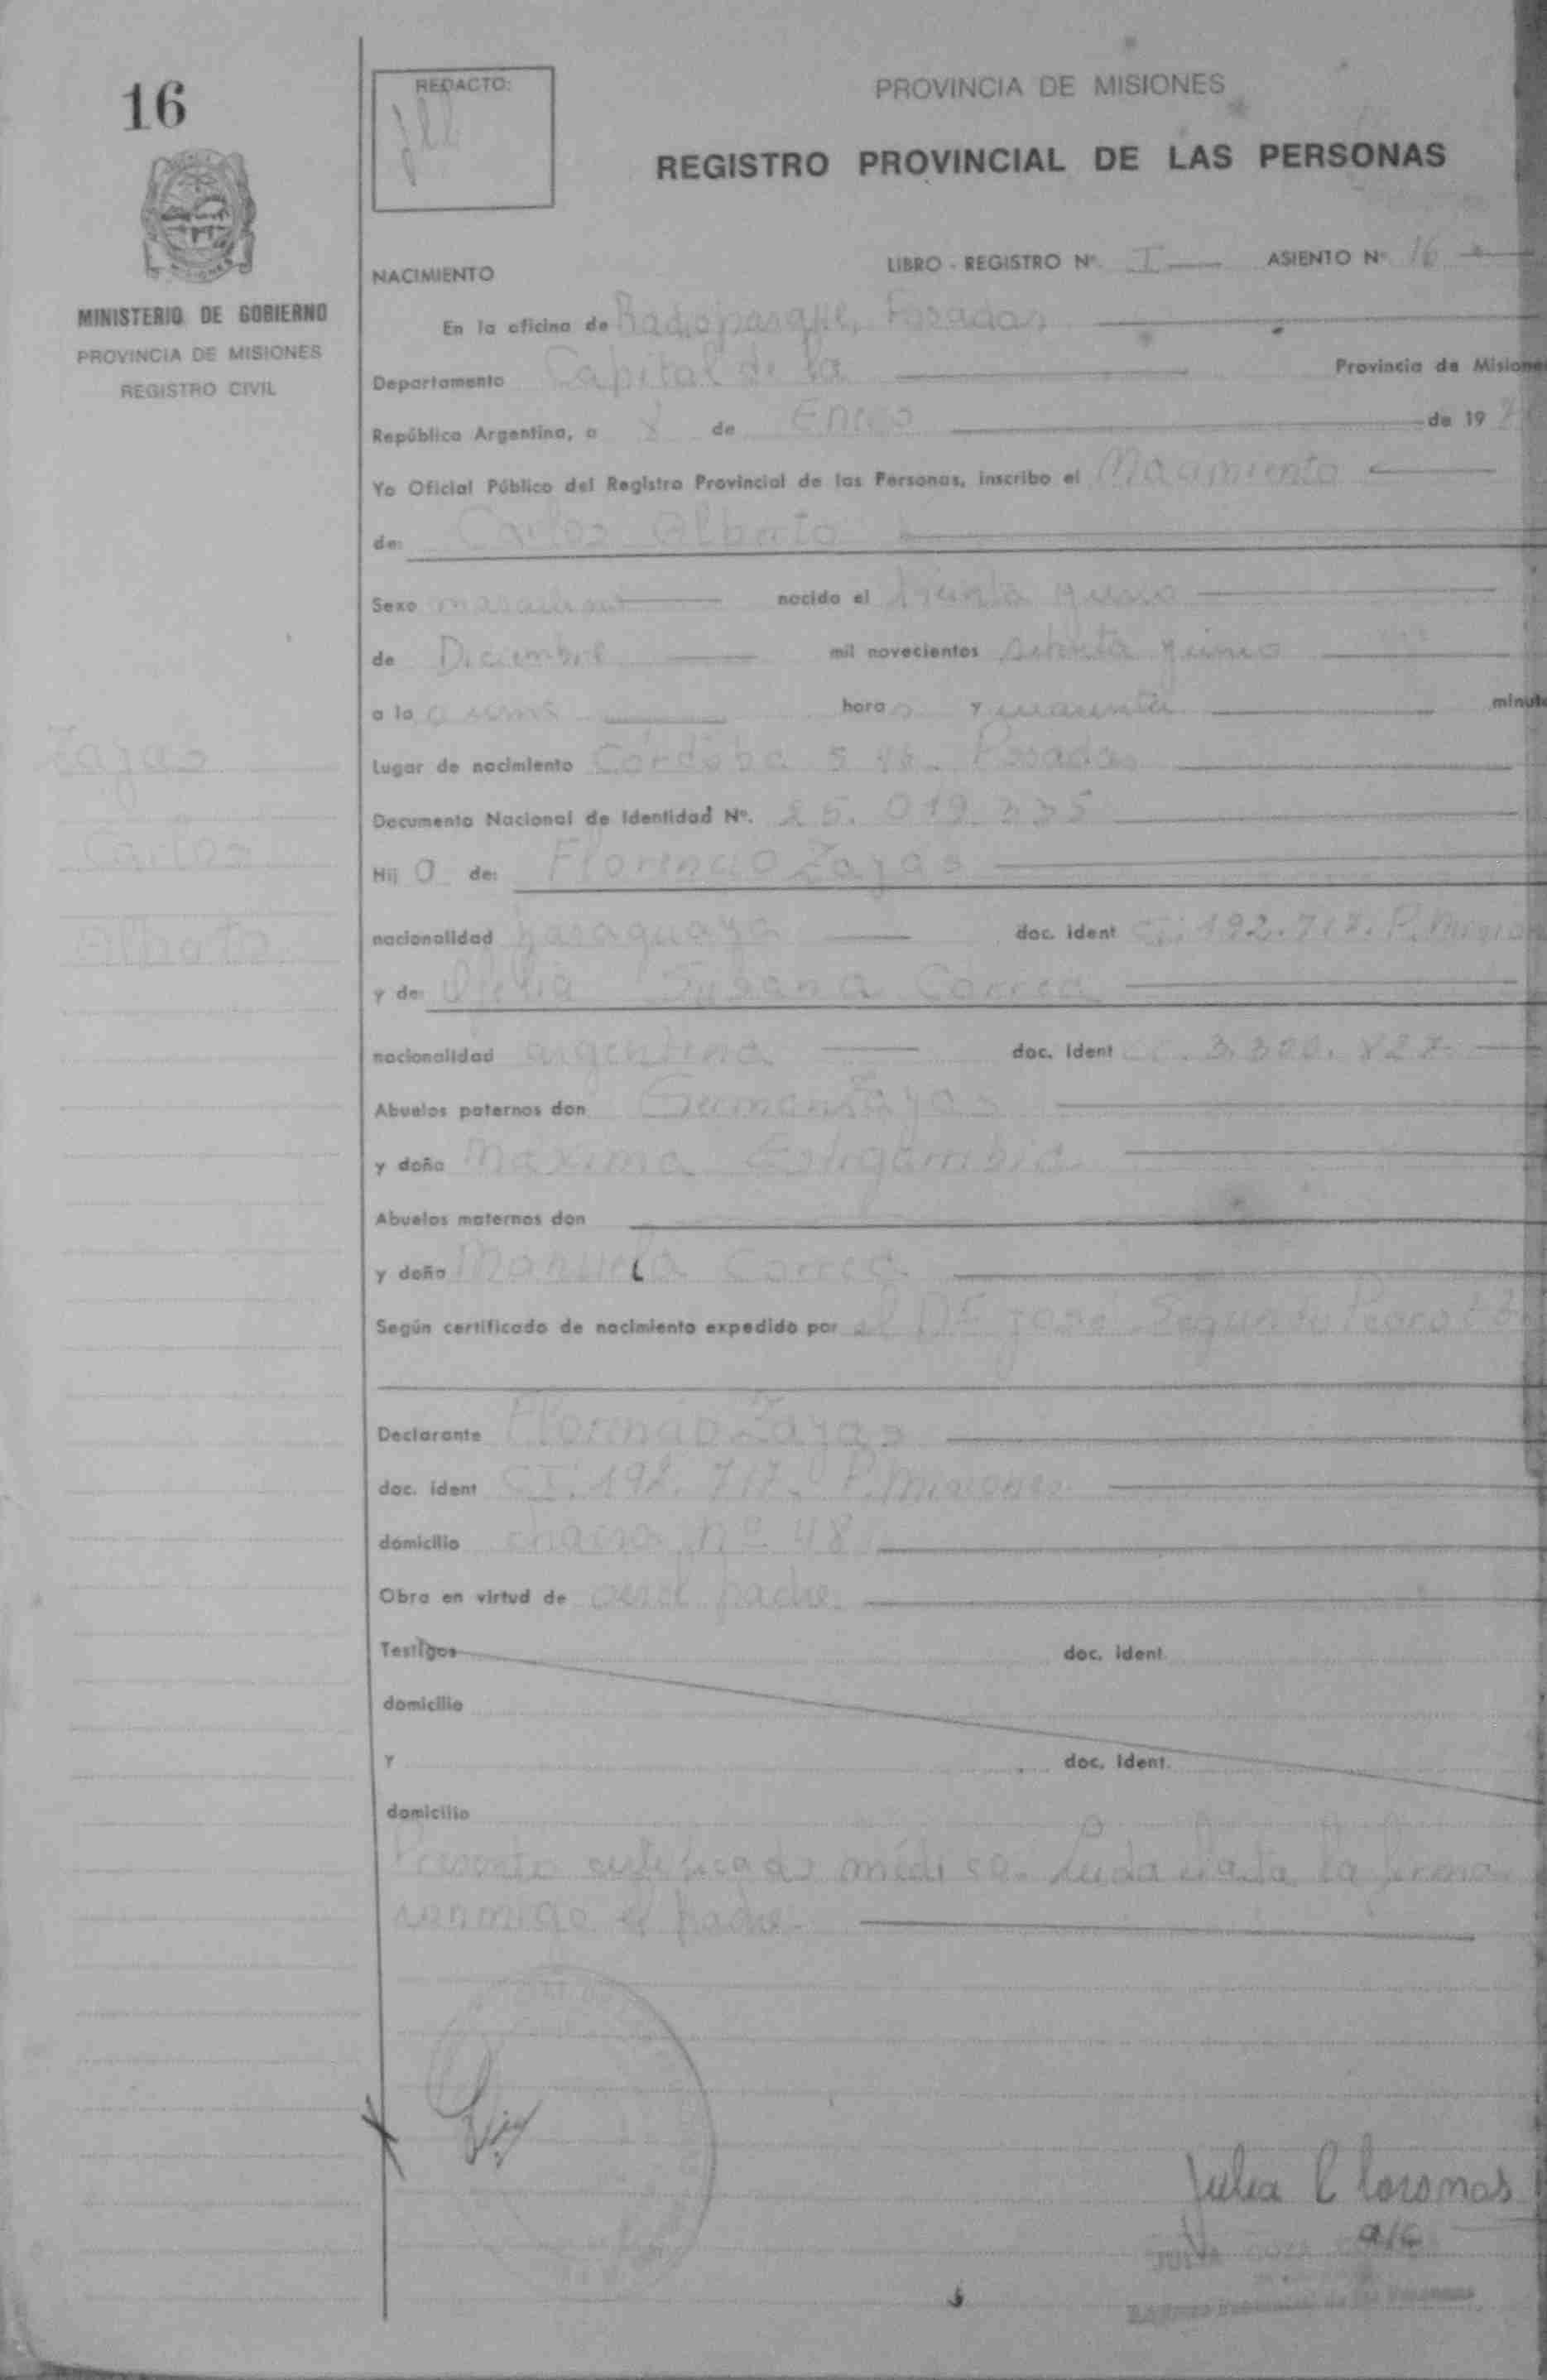 16
REDACTO:
PROVINCIA DE MISIONES
REGISTRO PROVINCIAL DE LAS PERSONAS
MINISTERIO DE GOBIERNO
PROVINCIA DE MISIONES
REGISTRO CIVIL
NACIMIENTO LIBRO - REGISTRO Nº I ASIENTO Nº 16
En la oficina de Radioparque, Posadas
Departamento Capital de la Provincia de Misiones
República Argentina, a 8 de Enero de 19
Yo Oficial Público del Registro Provincial de las Personas, inscribo el Nacimiento
de: Carlos Alberto
Sexo masculino nacido el treinta y uno
de Diciembre mil novecientos setenta y cinco
a la horas y cuarenta minutos
Lugar de nacimiento Córdoba Posadas
Documento Nacional de Identidad Nº. 25.019.335
Hij o de: Florencio Zayas
nacionalidad paraguaya doc. ident C.I. 192.717. P. Misiones
y de: Susana Correa
nacionalidad argentina doc. ident
Abuelos paternos don German Zayas
y doña Maxima Estigarribia
Abuelos maternos don
y doña Manuela Correa
Según certificado de nacimiento expedido por el Dr José Segundo
Declarante Florencio Zayas
doc. ident C.I. 192.717. P. Misiones
domicilio chacra nº 48
Obra en virtud de ser el padre
Testigos doc. ident
domicilio
y doc. ident.
domicilio
Presento certificado médico. Leida el acta la firma
conmigo el padre.
Zayas
Carlos
Alberto
Julia
a/c